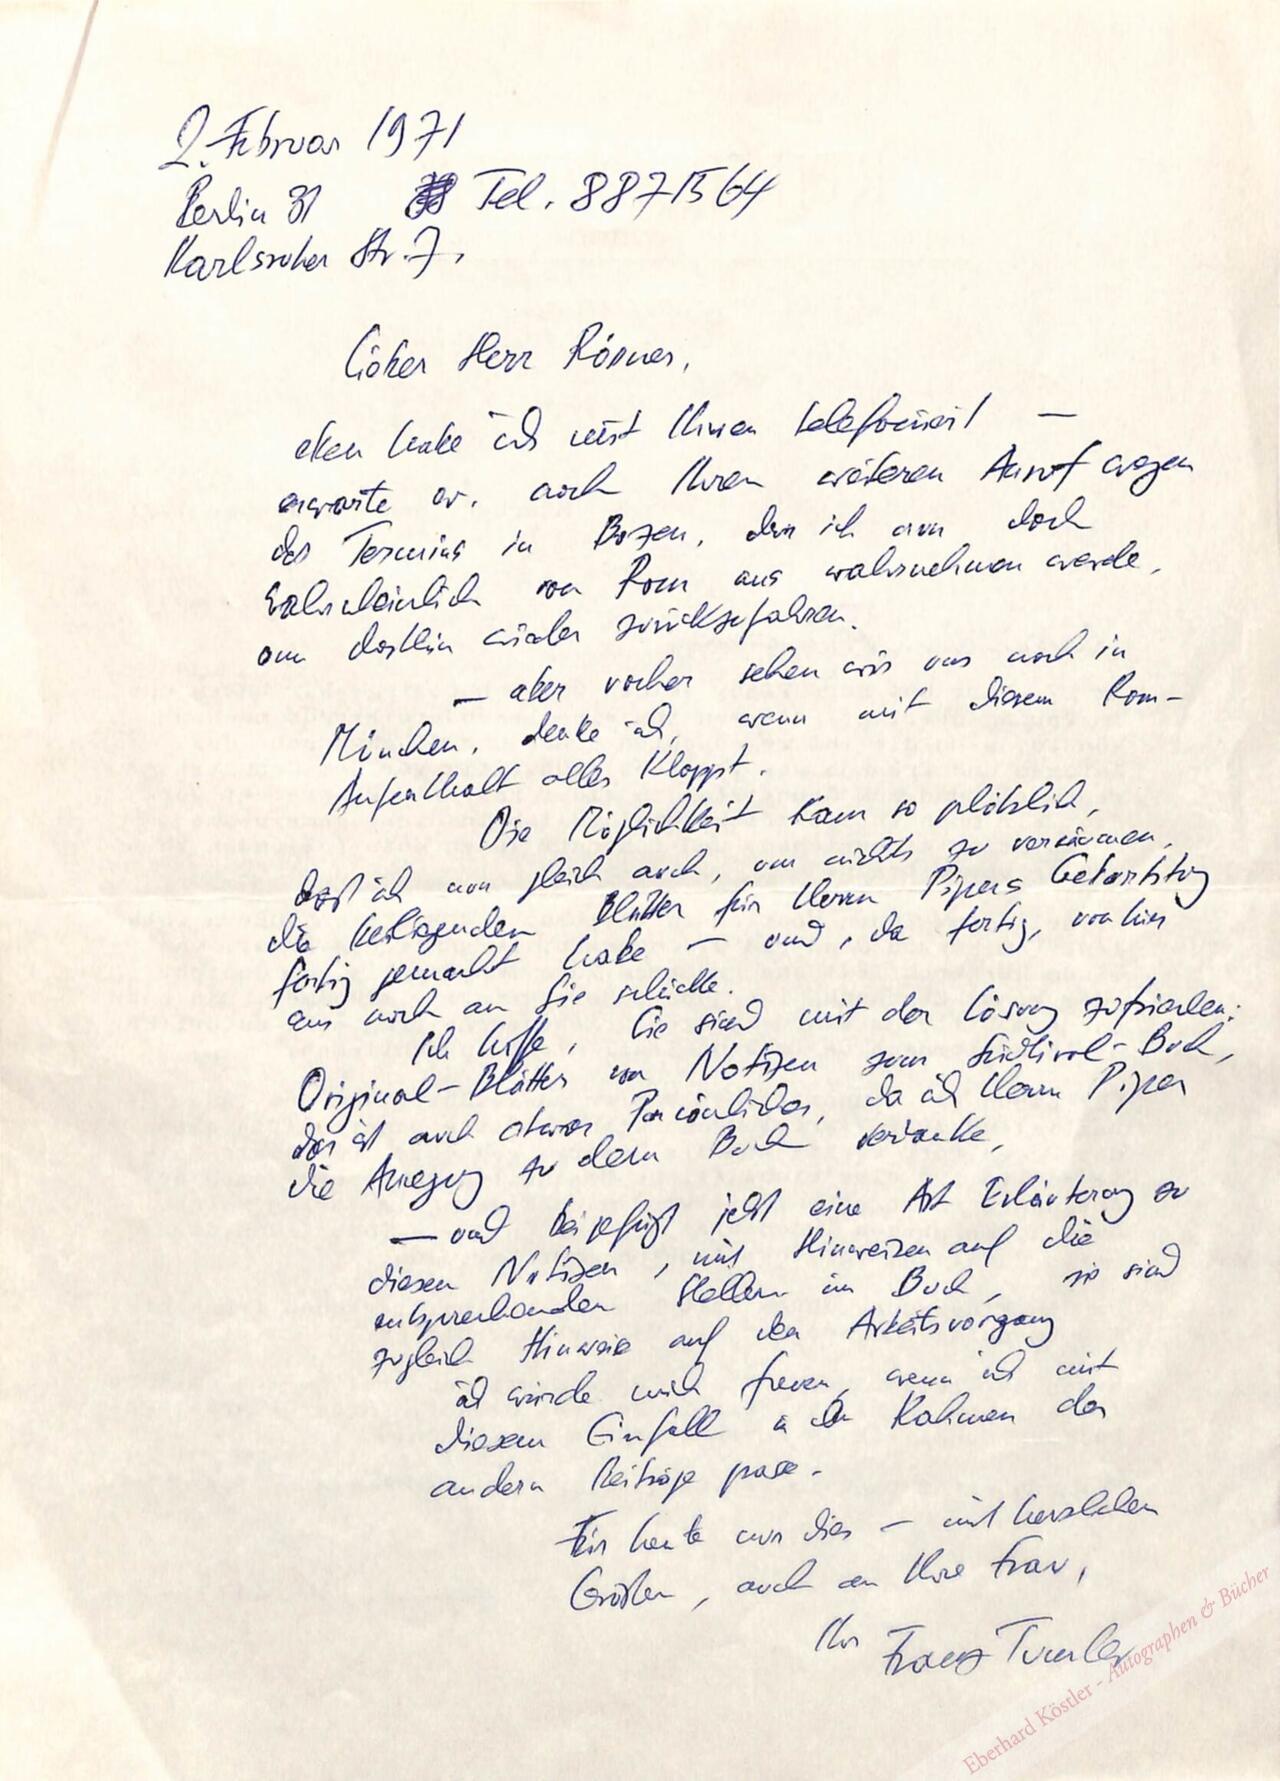 2. Februar 1971
Berlin 31 Tel. 8871564
Karlsruher Str. 7,
Lieber Herr Rösner,
eben habe ich mit Ihnen telefoniert —
erwarte noch Ihren weiteren Anruf wegen
des Termins in Bozen, den ich nun doch
wahrscheinlich von Rom aus wahrnehmen werde,
um dorthin wieder zurückzufahren.
— aber vorher sehen wir uns noch in
München, denke ich, wenn mit diesem Rom-
Aufenthalt alles klappt.
Die Möglichkeit kam so plötzlich,
dass ich nun gleich auch, um nichts zu versäumen,
die beiliegenden Blätter für Herrn Pipers Geburtstag
fertig gemacht habe — und, da fertig, von hier
aus noch an Sie schicke.
Ich hoffe, Sie sind mit der Lösung zufrieden:
Original-Blätter von Notizen zum Südtirol-Buch,
das ist auch etwas Persönliches, da ich Herrn Piper
die Anregung zu dem Buch verdanke,
— und beigefügt jetzt eine Art Erläuterung zu
diesen Notizen, mit Hinweisen auf die
entsprechenden Stellen im Buch, sie sind
zugleich Hinweise auf den Arbeitsvorgang
ich würde mich freuen, wenn ich mit
diesem Einfall in den Rahmen der
andern Beiträge passe.
Für heute nur dies — mit herzlichen
Grüßen, auch an Ihre Frau,
Ihr Franz Tumler
Eberhard Köstler - Autographen & Bücher